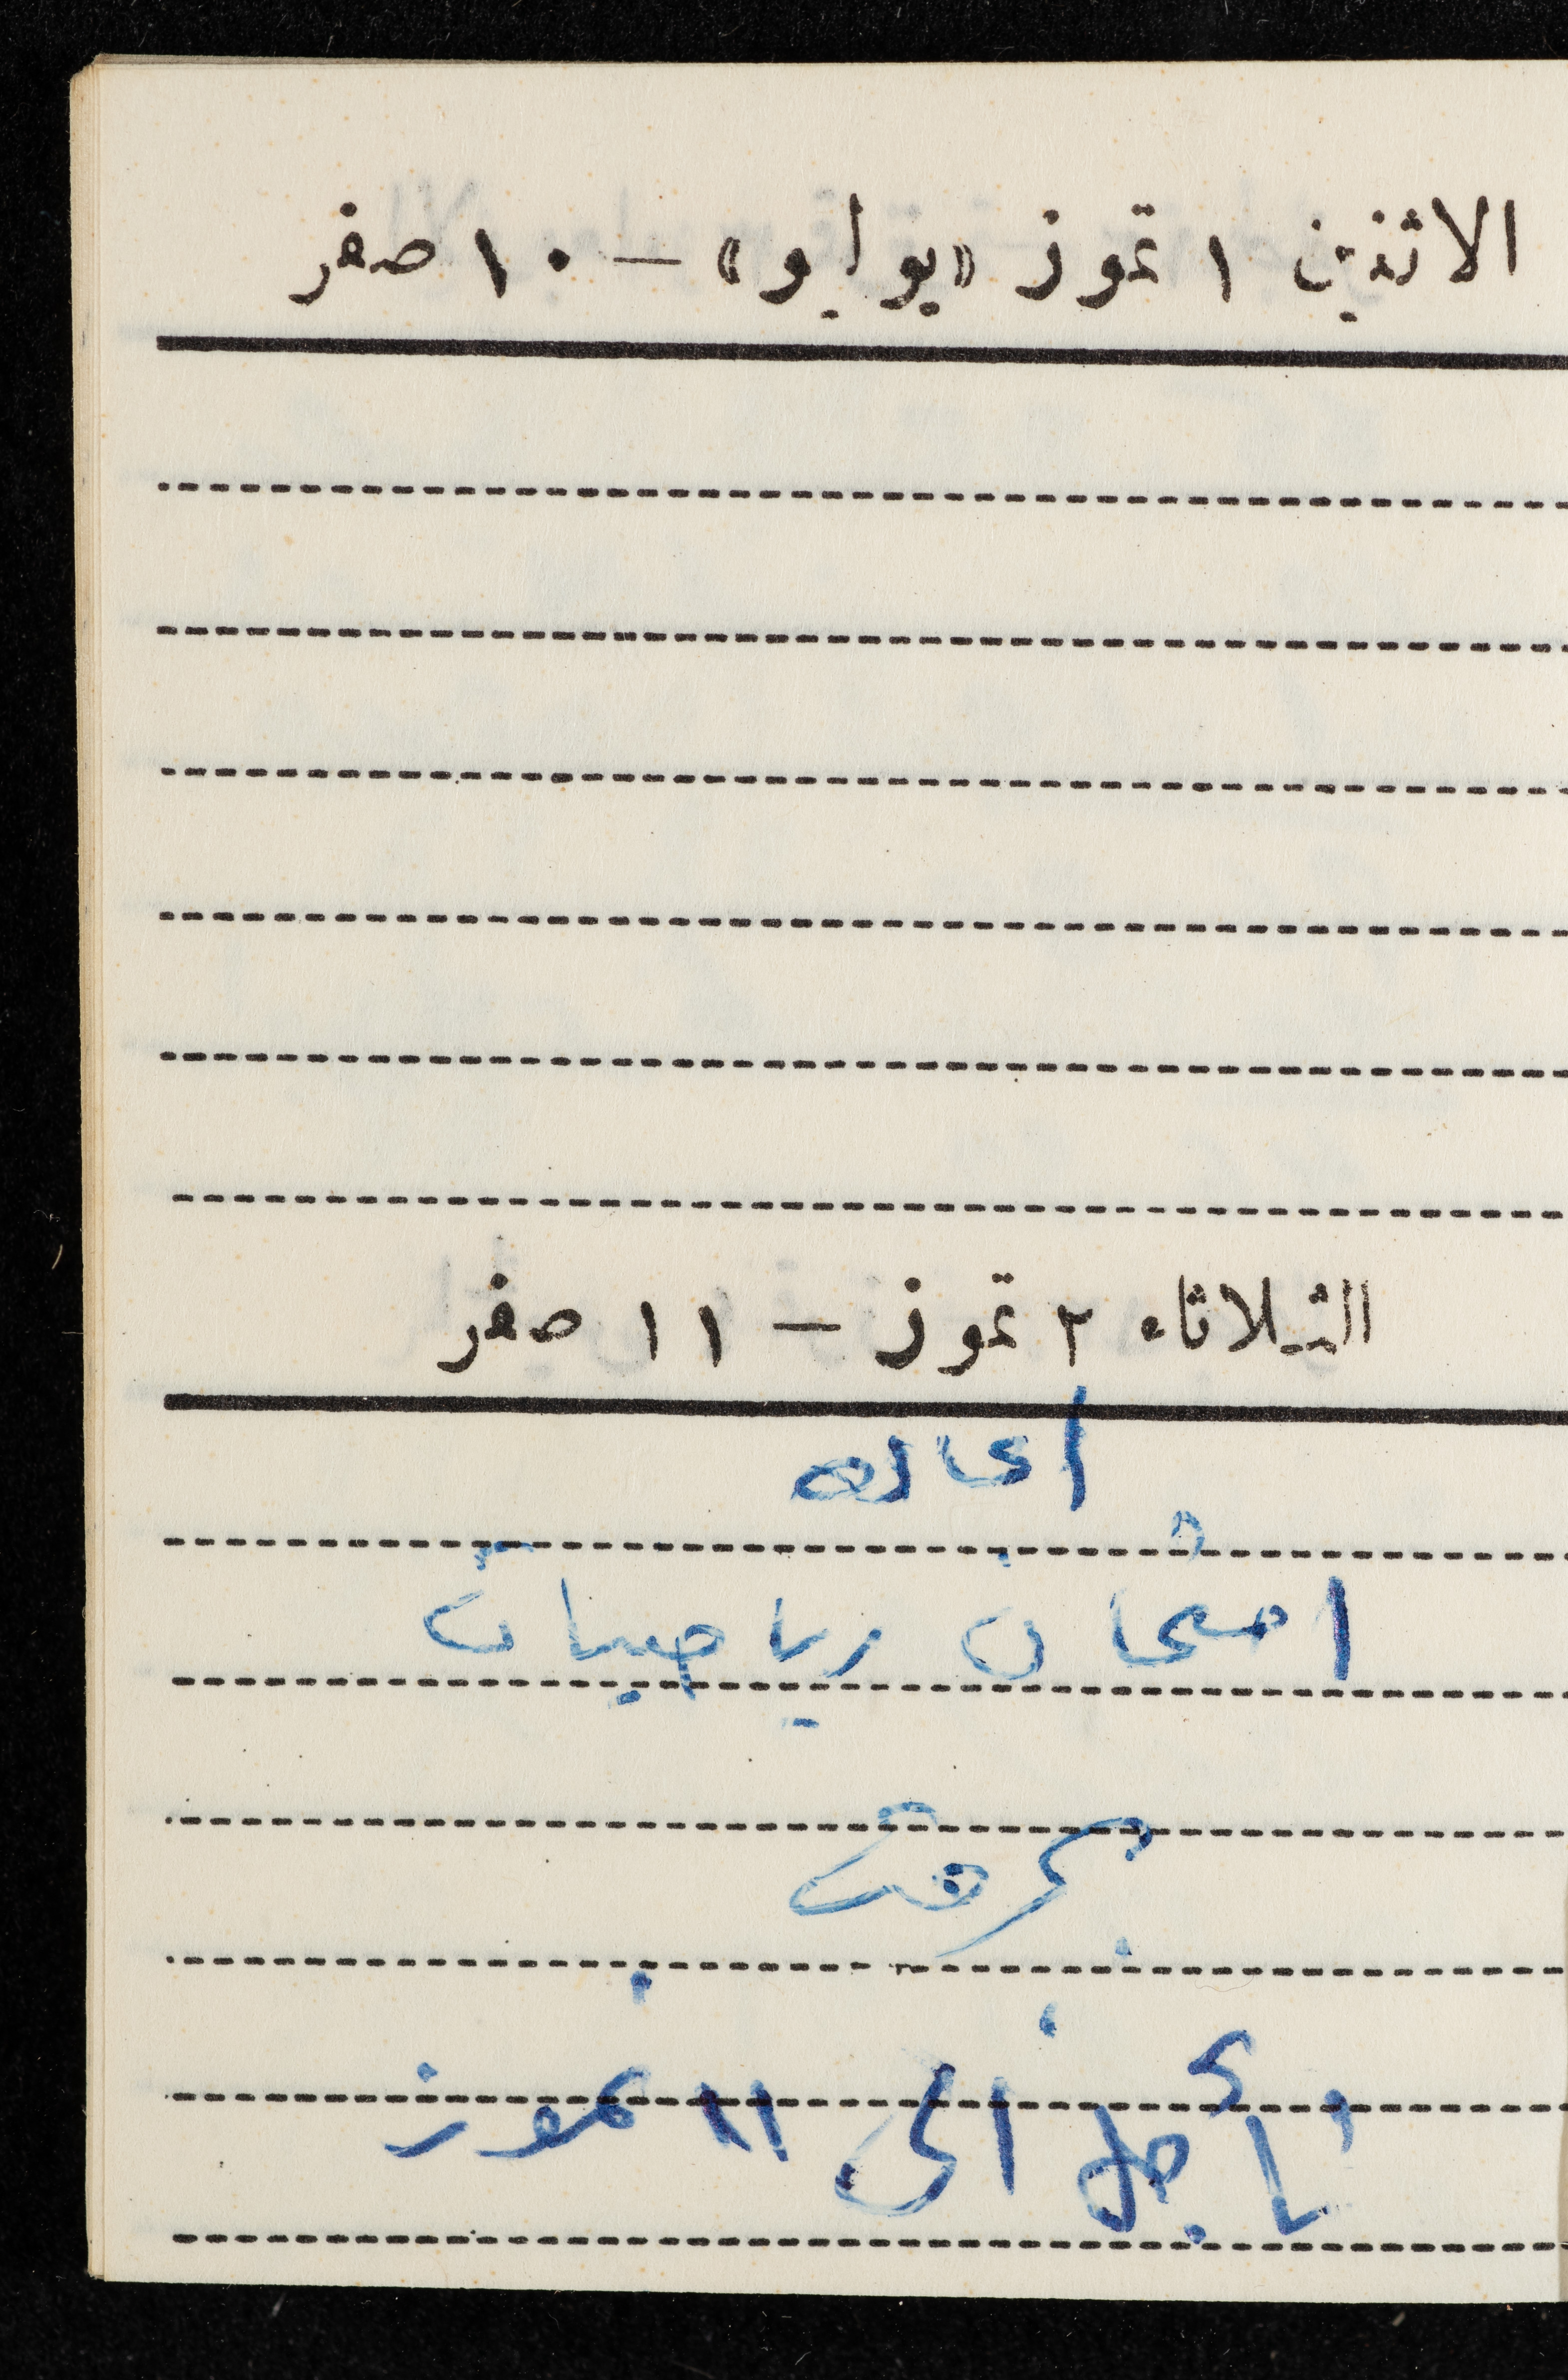 الاثنين ١ تموز «يوليو» – ١٠ صفر
الثلاثاء ٢ تموز – ١١ صفر
امتحان رياضيات
تأجل ألى ١١ تموز